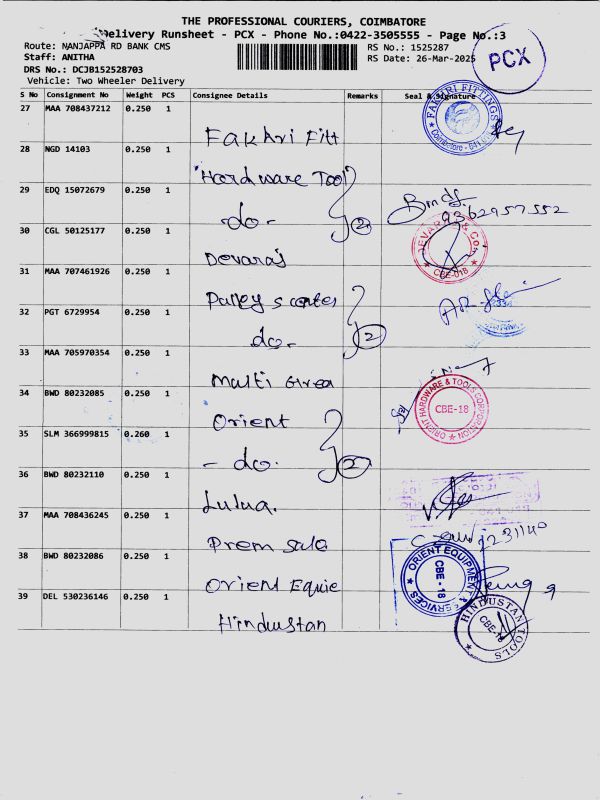 THE PROFESSIONAL COURIERS, COIMBATORE
Delivery Runsheet - PCX - Phone No.:0422-3505555 - Page No.:3
Route: NANJAPPA RD BANK CMS
RS No.: 1525287
Staff: ANITHA
RS Date: 26-Mar-2025
PCX
DRS No.: DCJB152528703
Vehicle: Two Wheeler Delivery
S No Consignment No Weight PCS Consignee Details Remarks Seal & Signature
27 MAA 708437212 0.250 1
Fakhri Fitt
FAKHRI FITTINGS
28 NGD 14103 0.250 1
Hardware Tool
29 EDQ 15072679 0.250 1
-do- 2
9362957552
30 CGL 50125177 0.250 1
Devaraj
DEVARAJ & Co.
CBE-018
31 MAA 707461926 0.250 1
32 PGT 6729954 0.250 1
do- 2
33 MAA 705970354 0.250 1
Multi
34 BWD 80232085 0.250 1
Orient
ORIENT HARDWARE & TOOLS CORPORATION
CBE-18
35 SLM 366999815 0.260 1
- do. 2
36 BWD 80232110 0.250 1
Lulua.
37 MAA 708436245 0.250 1
Prem Sale
38 BWD 80232086 0.250 1
Orient Equie
ORIENT EQUIPMENT & SERVICES
CBE - 18
39 DEL 530236146 0.250 1
Hindustan
HINDUSTAN TOOLS
CBE-18